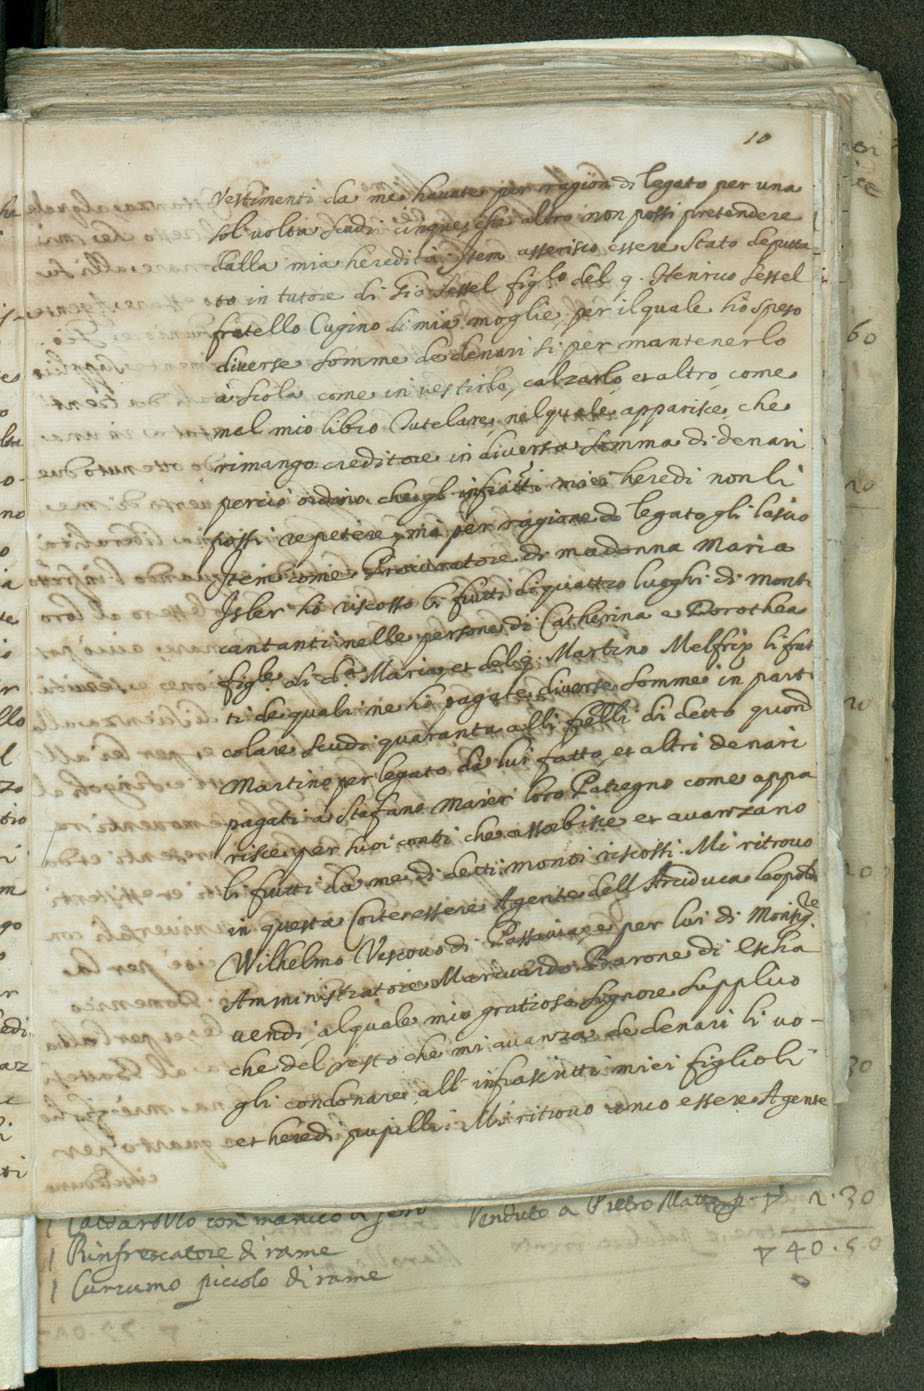 10
Vestimenti da me havute per ragion di legato per una
sol volta scudi cinque, che altro non possi pretendere
dalla mia heredità. Item asserisco essere stato deputa-
to in tutore di Gio Sessel figlo del q. Henrico Sessel
fratello Cugino di mia moglie, per il quale hò speso
diverse somme de denari si per mantenerlo
à scola come in vestirlo, calzarlo, et altro, come
nel mio libro Tutelare, nel quale apparisce, che
rimango creditore in diversa somma di denari
perciò ordino che gl infratti miei heredi non li
possi repetere, mà per ragione di legato gli lascio
Item come Procuratore di madonna Maria
Isler hò riscosso li frutti di quattro luoghi di monti
cantanti nelle persone di Catherina e Dorothea
figle di da Maria, et del q. Martino Melfrix li frut
ti de quali ne hò pagate diverse somme in parti
colare scudi quaranta alli frelli di detto quond
Martino per legato da lui fatto, et altri denari
pagati a Stefano Marier loro Patregno come appa
risce per suoi conti che assorbisce et avanzano
li frutti da me di detti monti riscossi. Mi ritrovo
in questa Corte essere Agente dell Arciduca Leopoldo
Wilhelmo Vescovo di Passavia, e per lui di Monsigre
Amministratore Marquardo Barone di Escha
vendi, al quale mio gratioso signore supplico
che del resto che mi avanza de denari li vo-
gli condonare all' infrascritti miei figlioli
et heredi pupilli. Mi ritrovo anco essere Agente
1 Caldarozzo con manico di ferro Venduto a Pietro 2.30
1 Rinfrescatore di rame 40.50
1 Curcumo piccolo di rame
60
20
20
20
30